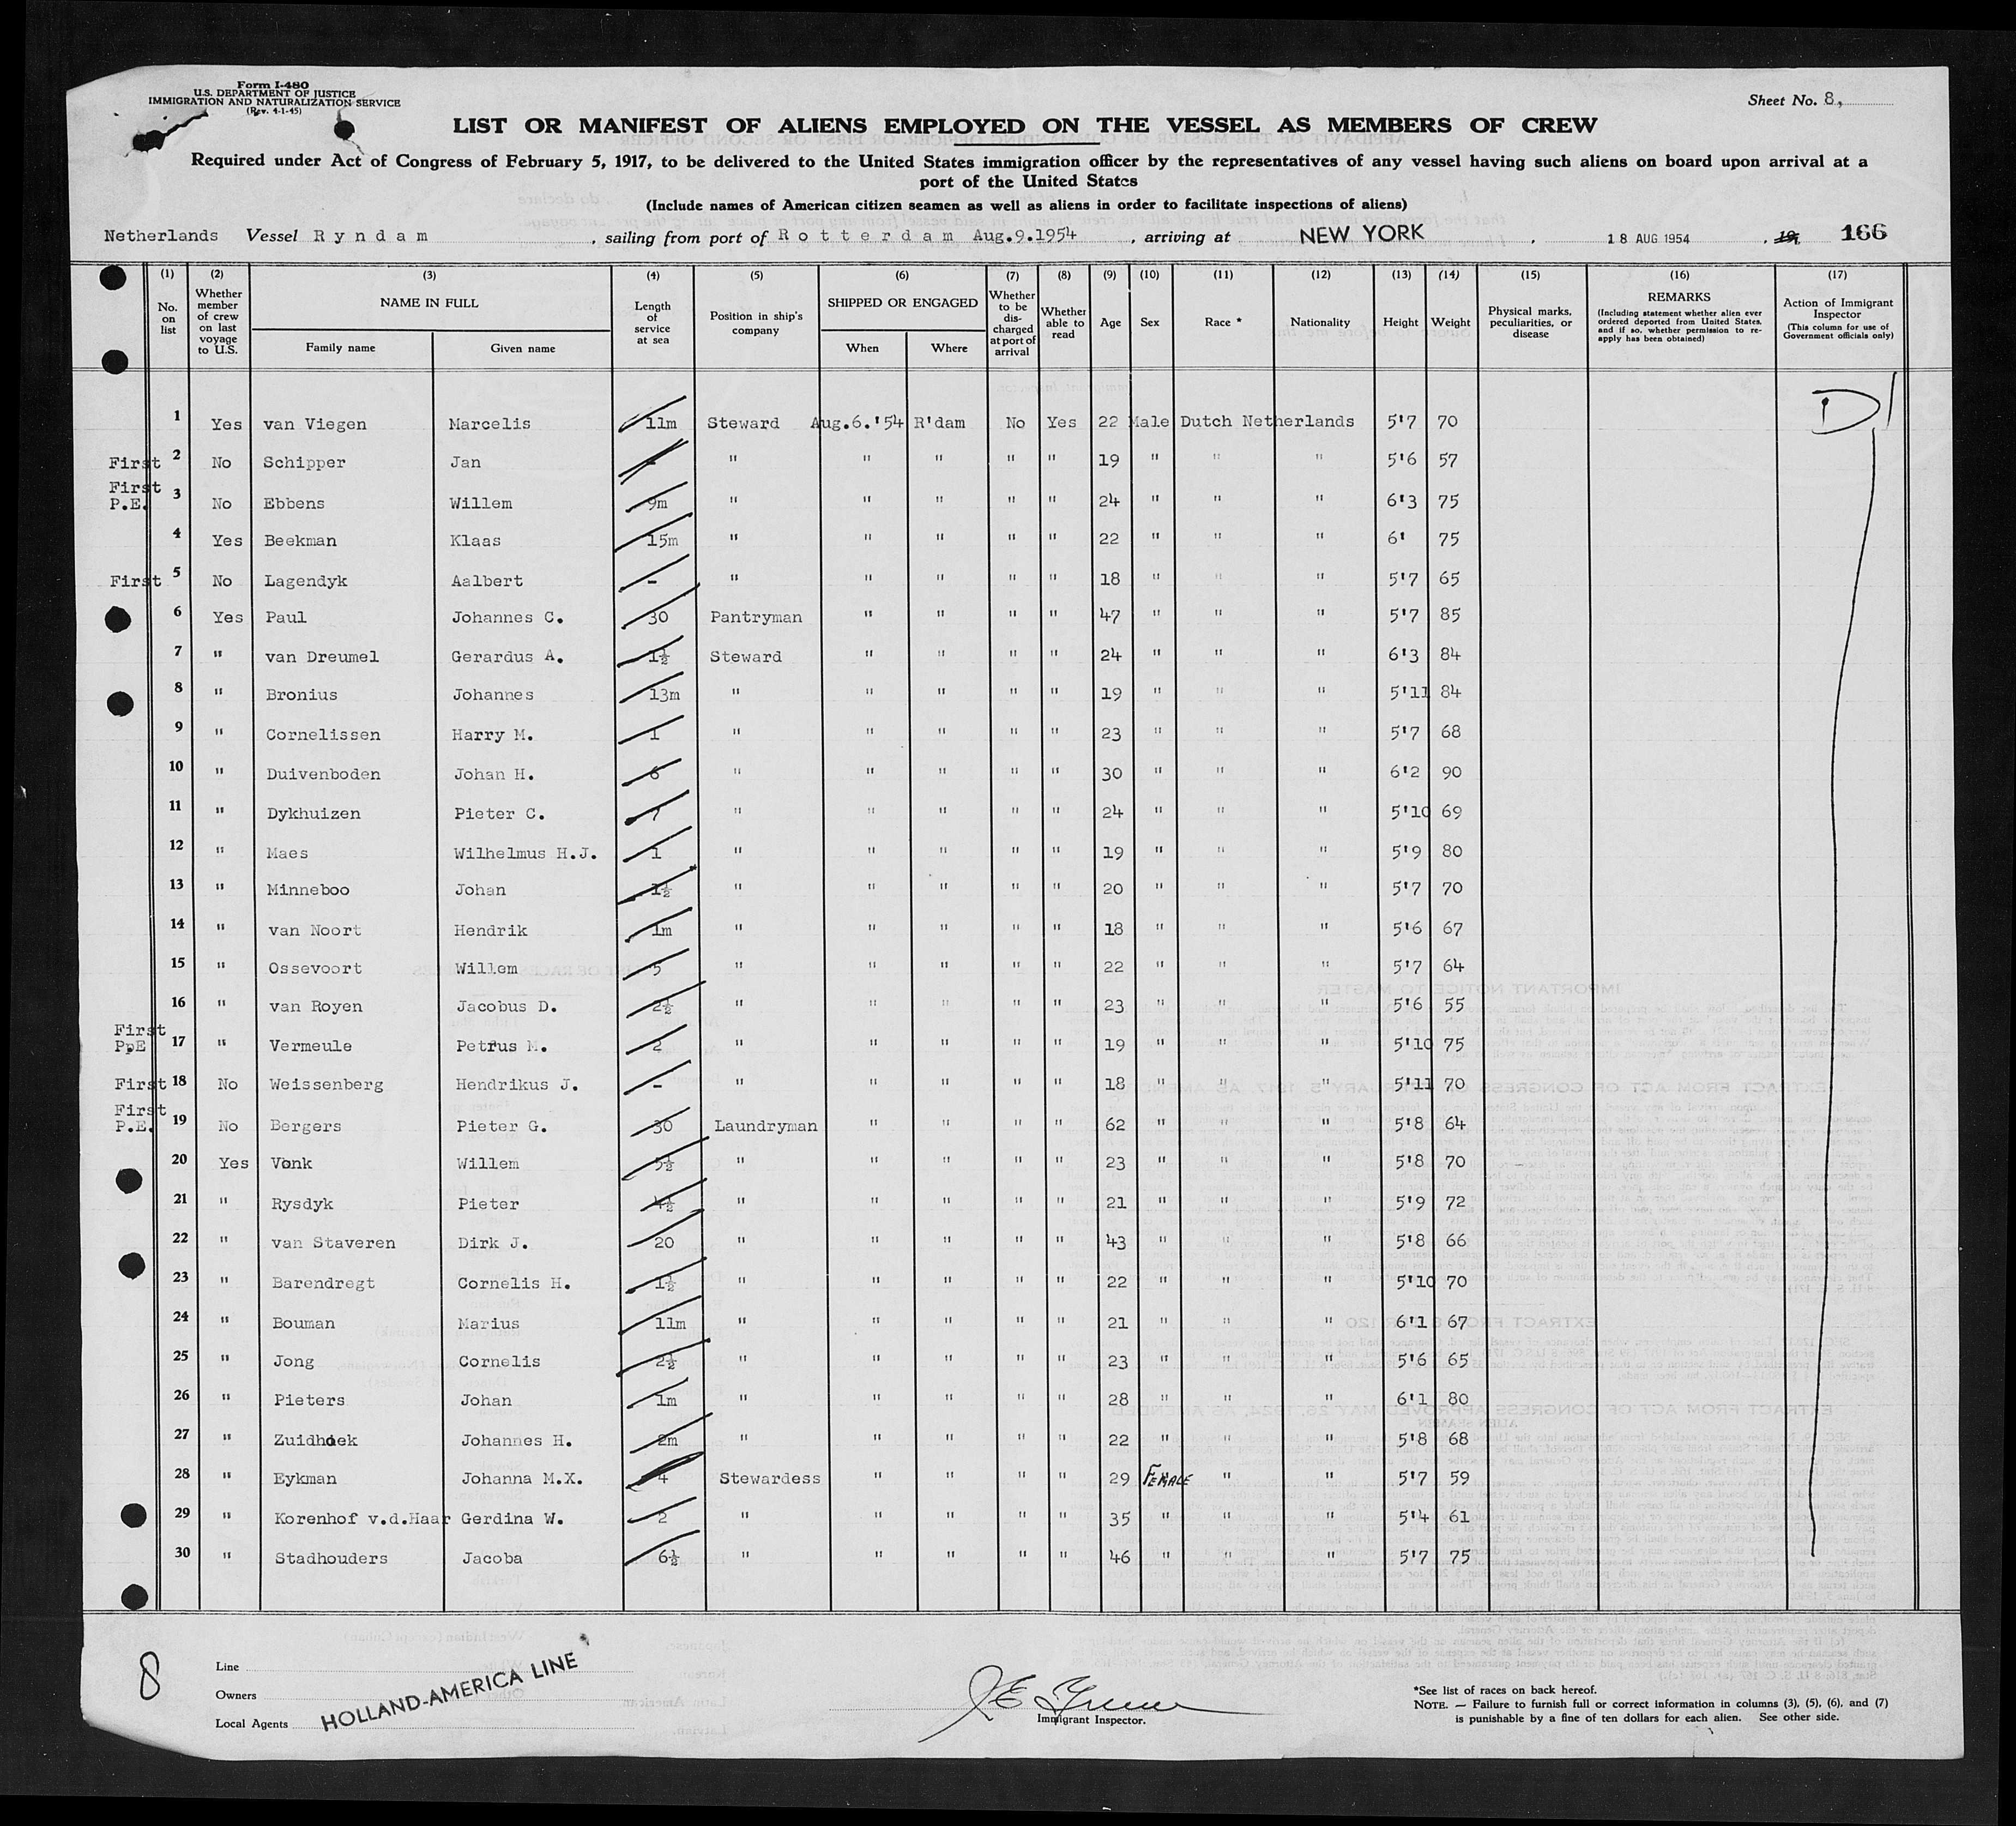 Form I-480
U.S. DEPARTMENT OF JUSTICE
IMMIGRATION AND NATURALIZATION SERVICE
(Rev. 4-1-45)
Sheet No. 8,
LIST OR MANIFEST OF ALIENS EMPLOYED ON THE VESSEL AS MEMBERS OF CREW
Required under Act of Congress of February 5, 1917, to be delivered to the United States immigration officer by the representatives of any vessel having such aliens on board upon arrival at a
port of the United States
(Include names of American citizen seamen as well as aliens in order to facilitate inspections of aliens)
Netherlands Vessel Ryndam, sailing from port of Rotterdam Aug.9.1954, arriving at NEW YORK, 18 AUG 1954, 19 166
(1) (2) (3) (4) (5) (6) (7) (8) (9) (10) (11) (12) (13) (14) (15) (16) (17)
No. on list | Whether member of crew on last voyage to U.S. | NAME IN FULL Family name Given name | Length of service at sea | Position in ship's company | SHIPPED OR ENGAGED When Where | Whether to be discharged at port of arrival | Whether able to read | Age | Sex | Race * | Nationality | Height | Weight | Physical marks, peculiarities, or disease | REMARKS (Including statement whether alien ever ordered deported from United States, and if so, whether permission to reapply has been obtained) | Action of Immigrant Inspector (This column for use of Government officials only)
1 Yes van Viegen Marcelis 11m Steward Aug.6.'54 R'dam No Yes 22 Male Dutch Netherlands 5'7 70 D1
First 2 No Schipper Jan - " " " " " 19 " " " 5'6 57
First P.E. 3 No Ebbens Willem 9m " " " " " 24 " " " 6'3 75
4 Yes Beekman Klaas 15m " " " " " 22 " " " 6' 75
First 5 No Lagendyk Aalbert - " " " " " 18 " " " 5'7 65
6 Yes Paul Johannes C. 30 Pantryman " " " " 47 " " " 5'7 85
7 " van Dreumel Gerardus A. 1½ Steward " " " " 24 " " " 6'3 84
8 " Bronius Johannes 13m " " " " " 19 " " " 5'11 84
9 " Cornelissen Harry M. 1 " " " " " 23 " " " 5'7 68
10 " Duivenboden Johan H. 6 " " " " " 30 " " " 6'2 90
11 " Dykhuizen Pieter C. 7 " " " " " 24 " " " 5'10 69
12 " Maes Wilhelmus H.J. 1 " " " " " 19 " " " 5'9 80
13 " Minneboo Johan 1½ " " " " " 20 " " " 5'7 70
14 " van Noort Hendrik 1m " " " " " 18 " " " 5'6 67
15 " Ossevoort Willem 5 " " " " " 22 " " " 5'7 64
16 " van Royen Jacobus D. 2½ " " " " " 23 " " " 5'6 55
First PpE 17 " Vermeule Petrus M. 2 " " " " " 19 " " " 5'10 75
First 18 No Weissenberg Hendrikus J. - " " " " " 18 " " " 5'11 70
First P.E. 19 No Bergers Pieter G. 30 Laundryman " " " " 62 " " " 5'8 64
20 Yes Vonk Willem 5½ " " " " " 23 " " " 5'8 70
21 " Rysdyk Pieter 4½ " " " " " 21 " " " 5'9 72
22 " van Staveren Dirk J. 20 " " " " " 43 " " " 5'8 66
23 " Barendregt Cornelis H. 1½ " " " " " 22 " " " 5'10 70
24 " Bouman Marius 11m " " " " " 21 " " " 6'1 67
25 " Jong Cornelis 2½ " " " " " 23 " " " 5'6 65
26 " Pieters Johan 1m " " " " " 28 " " " 6'1 80
27 " Zuidhoek Johannes H. 2m " " " " " 22 " " " 5'8 68
28 " Eykman Johanna M.X. 4 Stewardess " " " " 29 FEMALE " " 5'7 59
29 " Korenhof v.d.Haar Gerdina W. 2 " " " " " 35 " " " 5'4 61
30 " Stadhouders Jacoba 6½ " " " " " 46 " " " 5'7 75
8
Line
Owners
Local Agents
HOLLAND-AMERICA LINE
Immigrant Inspector.
*See list of races on back hereof.
NOTE. — Failure to furnish full or correct information in columns (3), (5), (6), and (7)
is punishable by a fine of ten dollars for each alien. See other side.